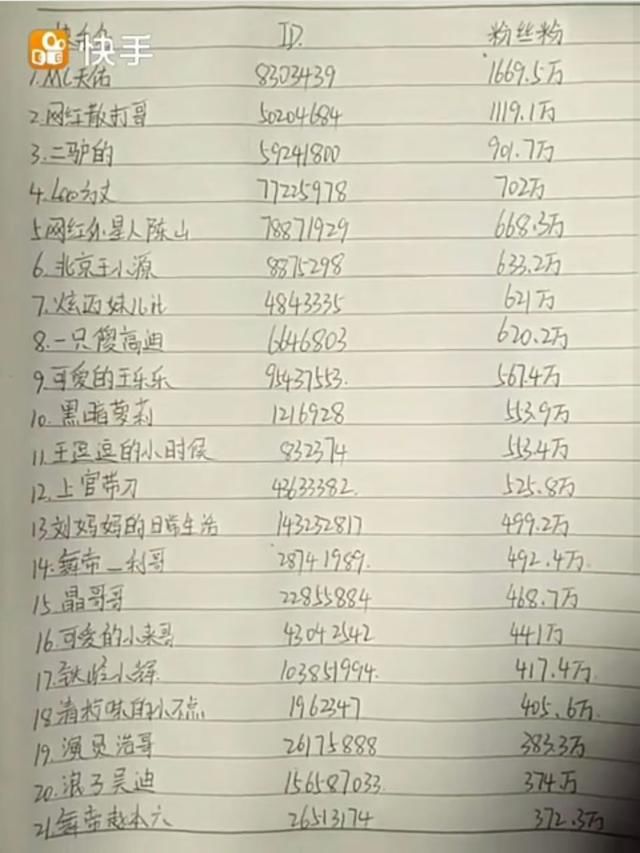 快手 ID 粉丝粉
1.MC天佑 8303439 1669.5万
2.网红散打哥 50204684 1119.1万
3.二驴的 59241800 901.7万
4.Leo方丈 77225978 702万
5.网红外星人陈山 78871929 668.3万
6.北京王小源 8875298 633.2万
7.炫迈妹儿 4843335 621万
8.一只傻高迪 6646803 620.2万
9.可爱的王乐乐 95437553. 567.4万
10.黑暗萝莉 1216928 553.9万
11.王逗逗的小时候 832374 553.4万
12.上官带刀 43633382. 525.8万
13刘妈妈的日常生活 143232817 499.2万
14.舞帝一利哥 28741989. 492.4万
15.晶哥哥 22855884 468.7万
16.可爱的小来哥 43042542 441万
17.铁岭小辉. 103851994. 417.4万
18.清柠味的小不点 1962347 405.6万
19.演员浩哥 26175888 383.3万
20.浪子吴迪 156587033. 374万
21.舞帝赵本六 26513174 372.3万